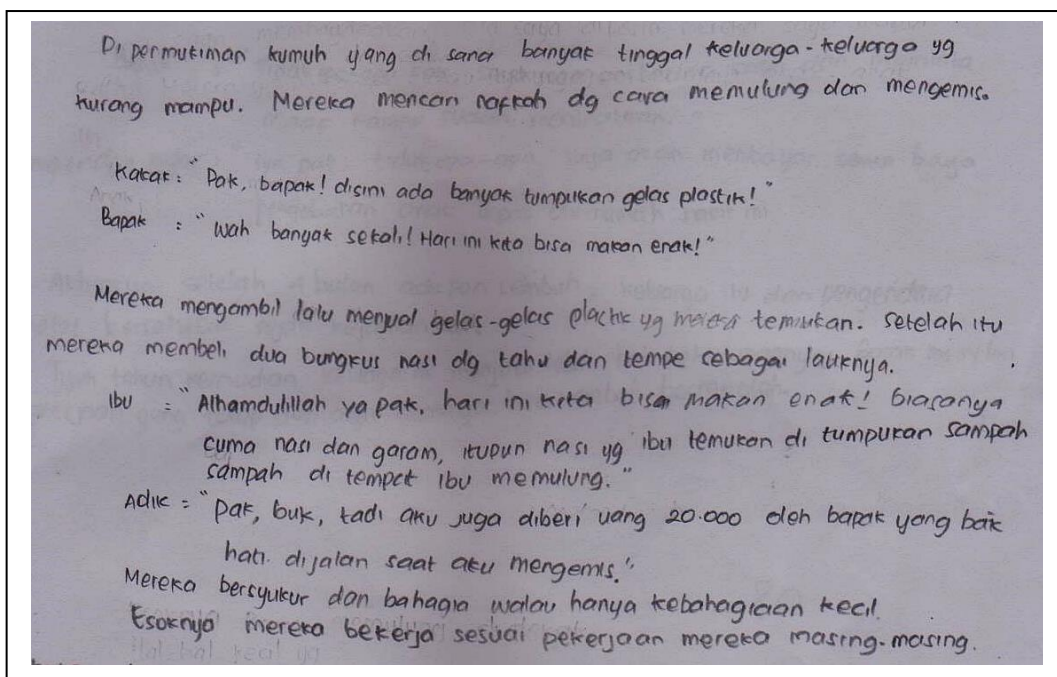 Di permukiman kumuh yang di sana banyak tinggal keluarga-keluarga yg
kurang mampu. Mereka mencari nafkah dg cara memulung dan mengemis.
Kakak : "Pak, bapak! disini ada banyak tumpukan gelas plastik!"
Bapak : "Wah banyak sekali! Hari ini kita bisa makan enak!"
Mereka mengambil lalu menjual gelas-gelas plastik yg mereka temukan. Setelah itu
mereka membeli dua bungkus nasi dg tahu dan tempe sebagai lauknya.
Ibu : "Alhamdulillah ya pak, hari ini kita bisa makan enak! biasanya
cuma nasi dan garam, itupun nasi yg ibu temukan di tumpukan sampah
sampah di tempat ibu memulung."
Adik : "Pak, buk, tadi aku juga diberi uang 20.000 oleh bapak yang baik
hati dijalan saat aku mengemis."
Mereka bersyukur dan bahagia walau hanya kebahagiaan kecil.
Esoknya mereka bekerja sesuai pekerjaan mereka masing-masing.